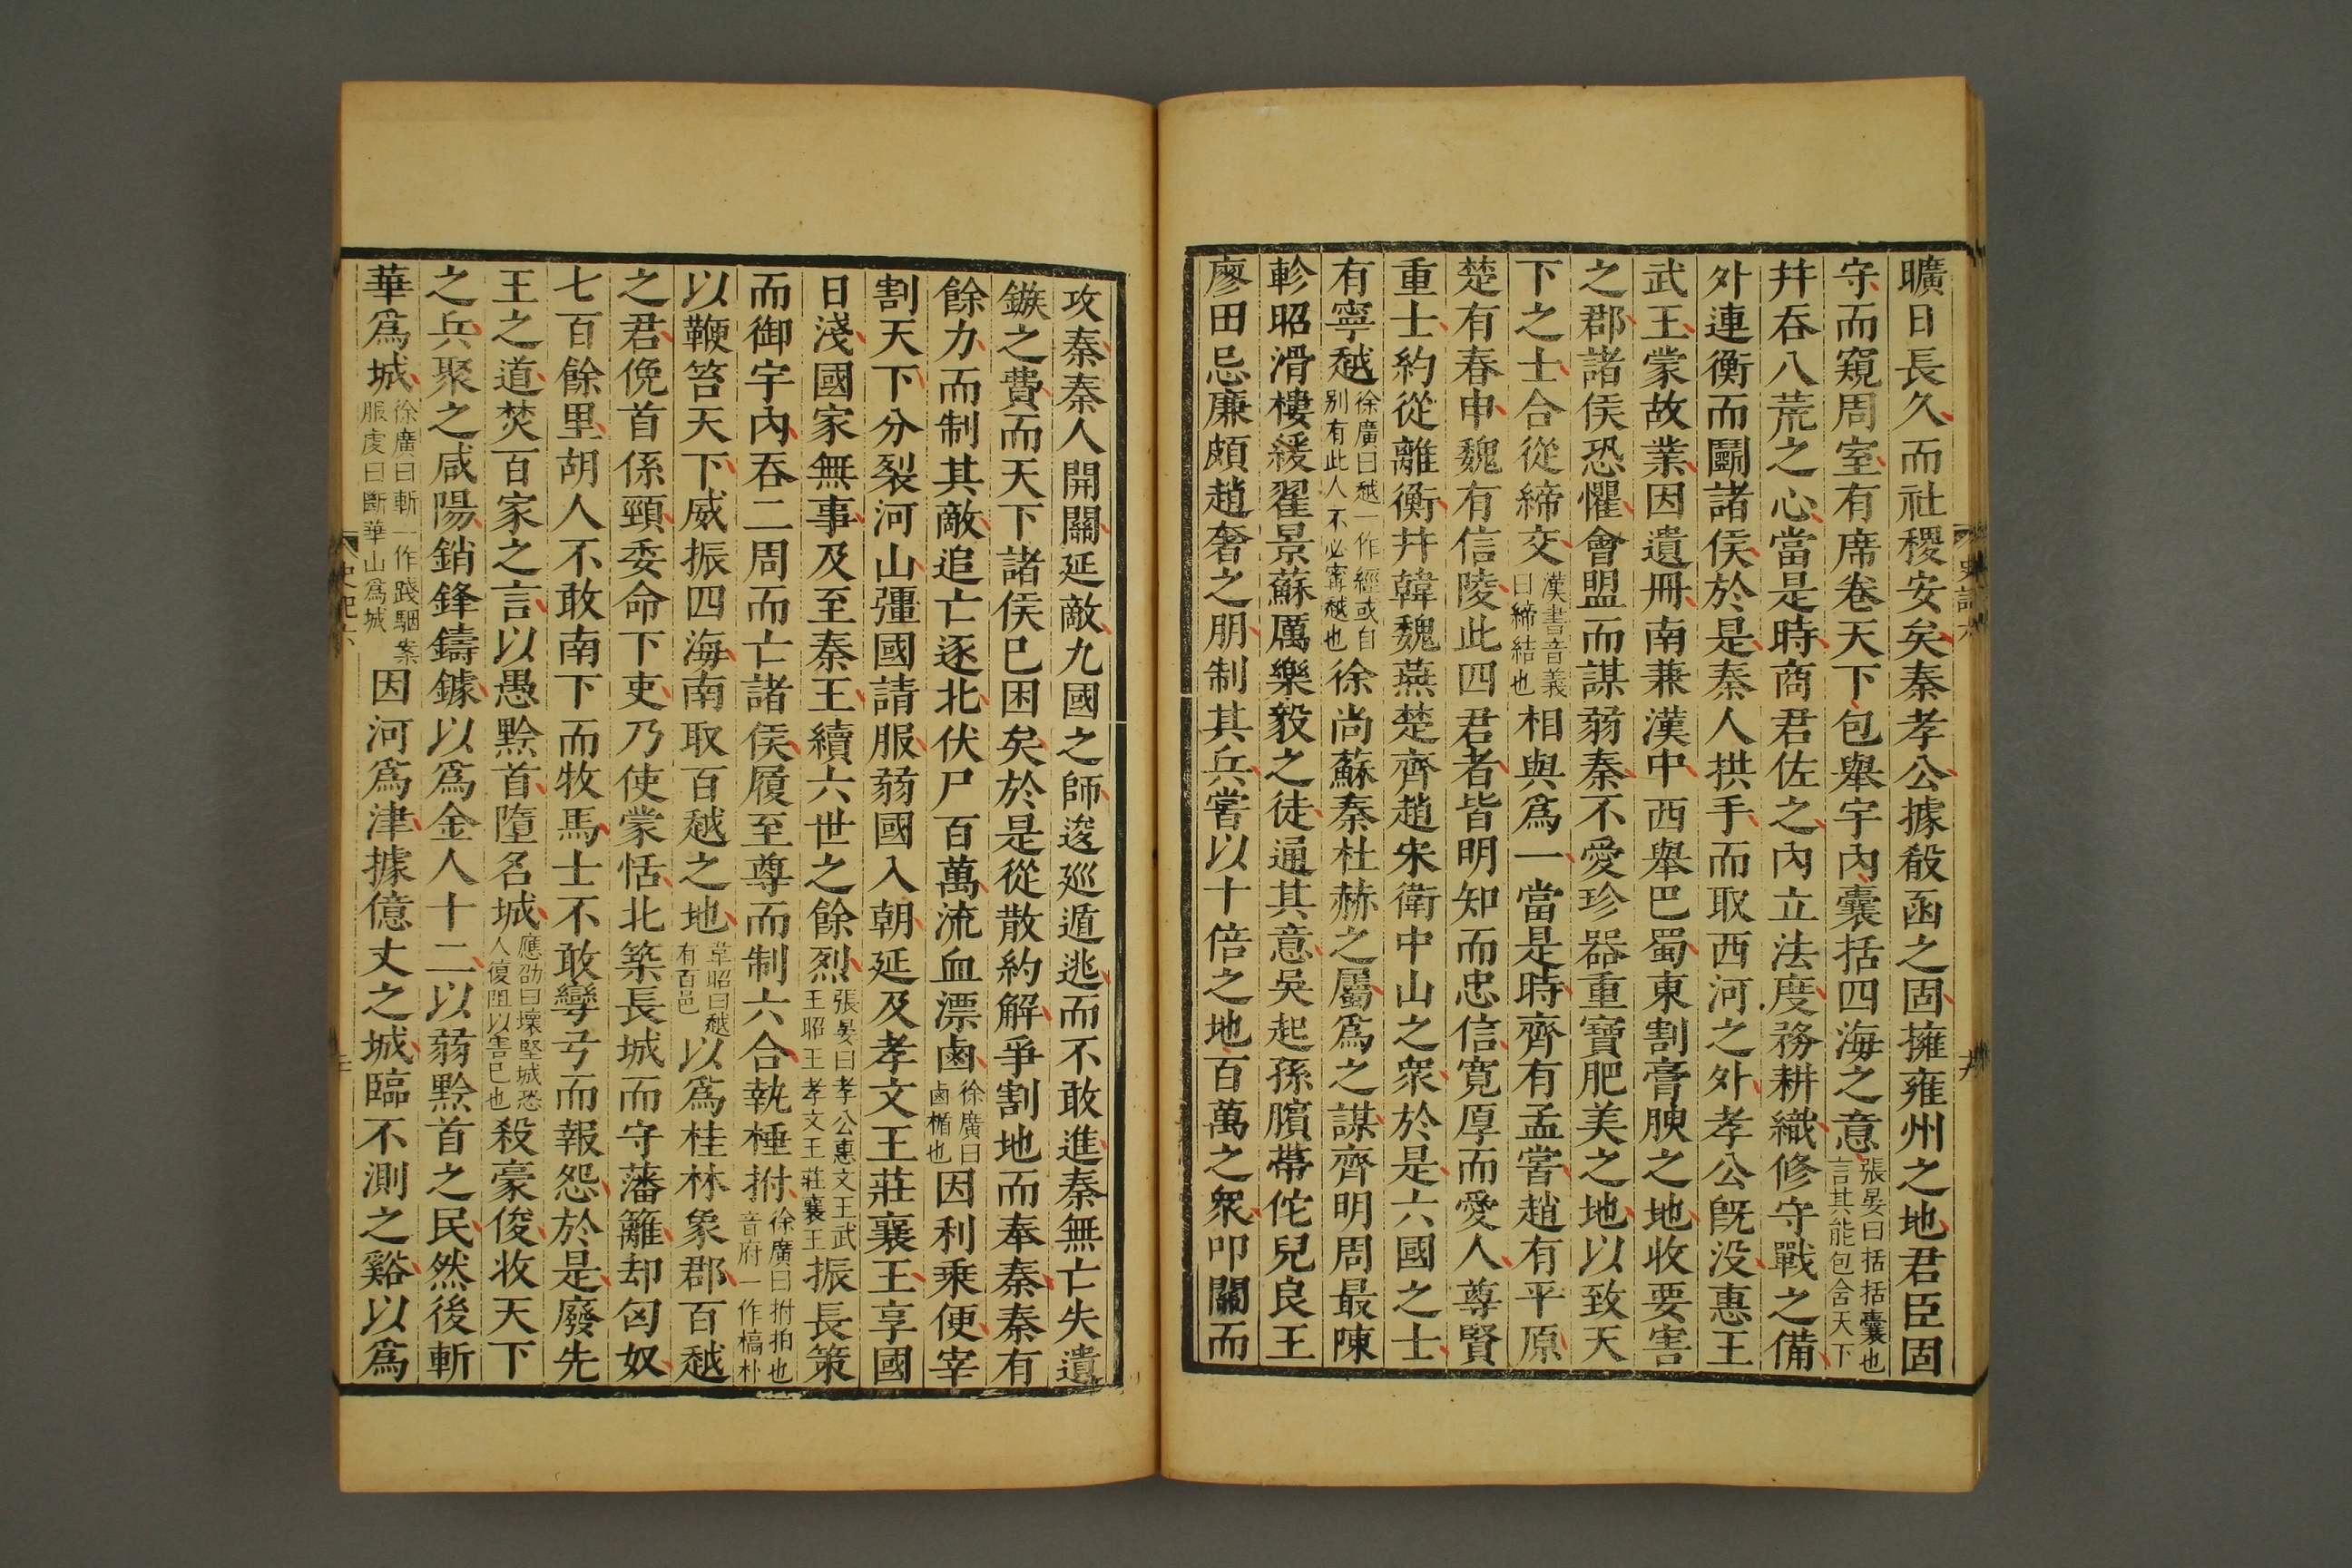 曠日長久而社稷安矣秦孝公據殽函之固擁雍州之地君臣固
守而窺周室有席卷天下包舉宇內囊括四海之意張晏曰括括囊也言其能包含天下
井吞八荒之心當是時商君佐之內立法度務耕織修守戰之備
外連衡而鬭諸侯於是秦人拱手而取西河之外孝公旣没惠王
武王蒙故業因遺冊南兼漢中西舉巴蜀東割膏腴之地收要害
之郡諸侯恐懼會盟而謀弱秦不愛珍器重寶肥美之地以致天
下之士合從締交漢書音義曰締結也相與爲一當是時齊有孟嘗趙有平原
楚有春申魏有信陵此四君者皆明知而忠信寛厚而愛人尊賢
重士約從離衡井韓魏燕楚齊趙宋衛中山之衆於是六國之士
有寧越徐廣曰越一作經或自別有此人不必甯越也徐尚蘇秦杜赫之屬爲之謀齊明周最陳
軫昭滑樓緩翟景蘇厲樂毅之徒通其意吳起孫臏帶佗兒良王
廖田忌廉頗趙奢之朋制其兵嘗以十倍之地百萬之衆叩關而
史記六
十九
攻秦秦人開關延敵九國之師逡巡遁逃而不敢進秦無亡矢遺
鏃之費而天下諸侯已困矣於是從散約解爭割地而奉秦秦有
餘力而制其敵追亡逐北伏尸百萬流血漂鹵徐廣曰鹵楯也因利乘便宰
割天下分裂河山彊國請服弱國入朝延及孝文王莊襄王享國
日淺國家無事及至秦王續六世之餘烈張晏曰孝公惠文王武王昭王孝文王莊襄王振長策
而御宇內吞二周而亡諸侯履至尊而制六合執棰拊徐廣曰拊拍也音府一作槁朴
以鞭笞天下威振四海南取百越之地韋昭曰越有百邑以爲桂林象郡百越
之君俛首係頸委命下吏乃使蒙恬北築長城而守藩籬却匈奴
七百餘里胡人不敢南下而牧馬士不敢彎弓而報怨於是廢先
王之道焚百家之言以愚黔首墮名城應劭曰壞堅城恐人復阻以害已也殺豪俊收天下
之兵聚之咸陽銷鋒鑄鐻以爲金人十二以弱黔首之民然後斬
華爲城徐廣曰斬一作踐駰案服虔曰斷華山爲城因河爲津據億丈之城臨不測之谿以爲
史記六